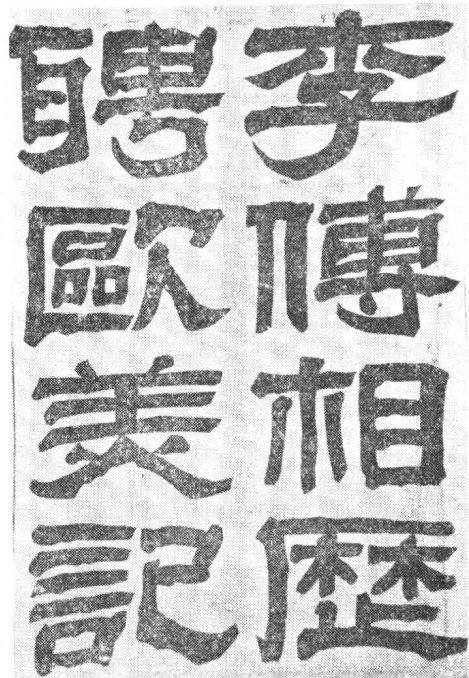 李傅相歷
聘歐美記